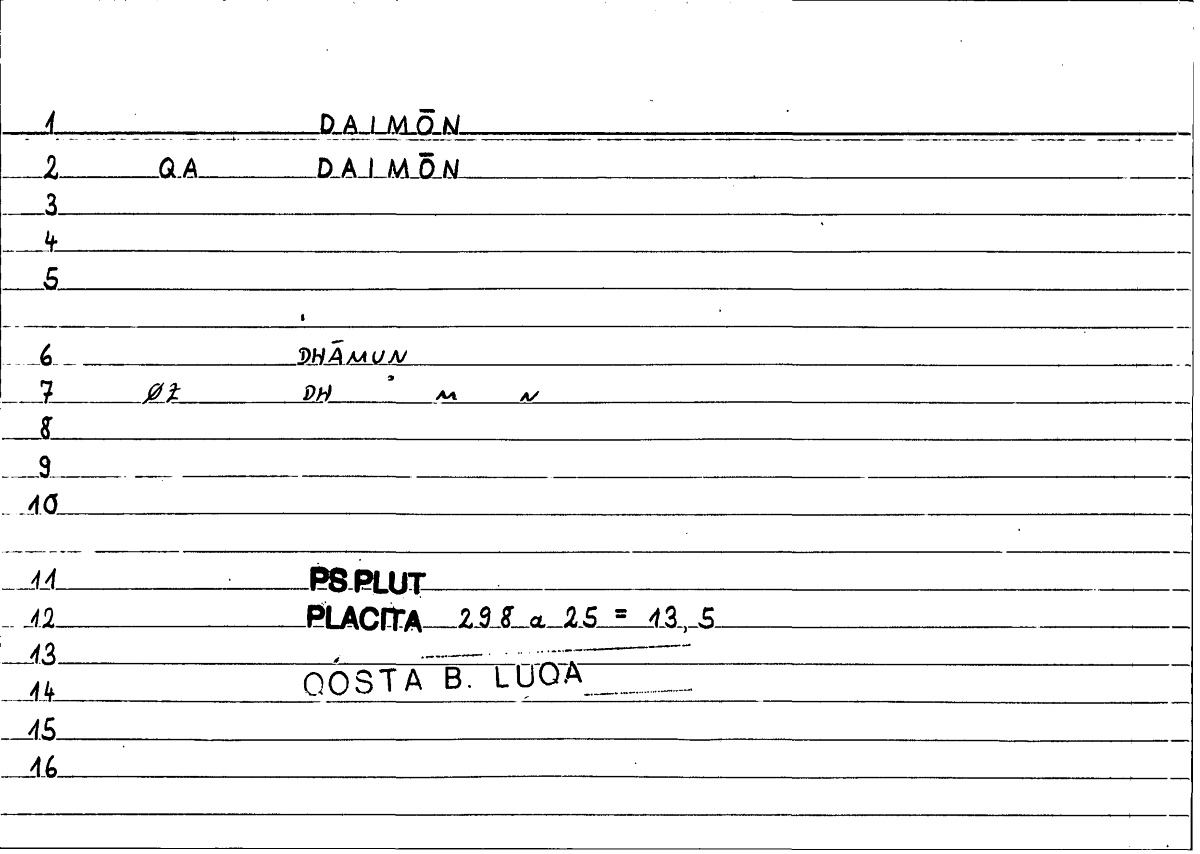 1 DAIMŌN
2 QA DAIMŌN
3
4
5
6 DHĀMUN
7 ØZ DH ' M N
8
9
10
11 PS.PLUT
12 PLACITA 298 a 25 = 13,5
13
14 QOSTA B. LUQA
15
16